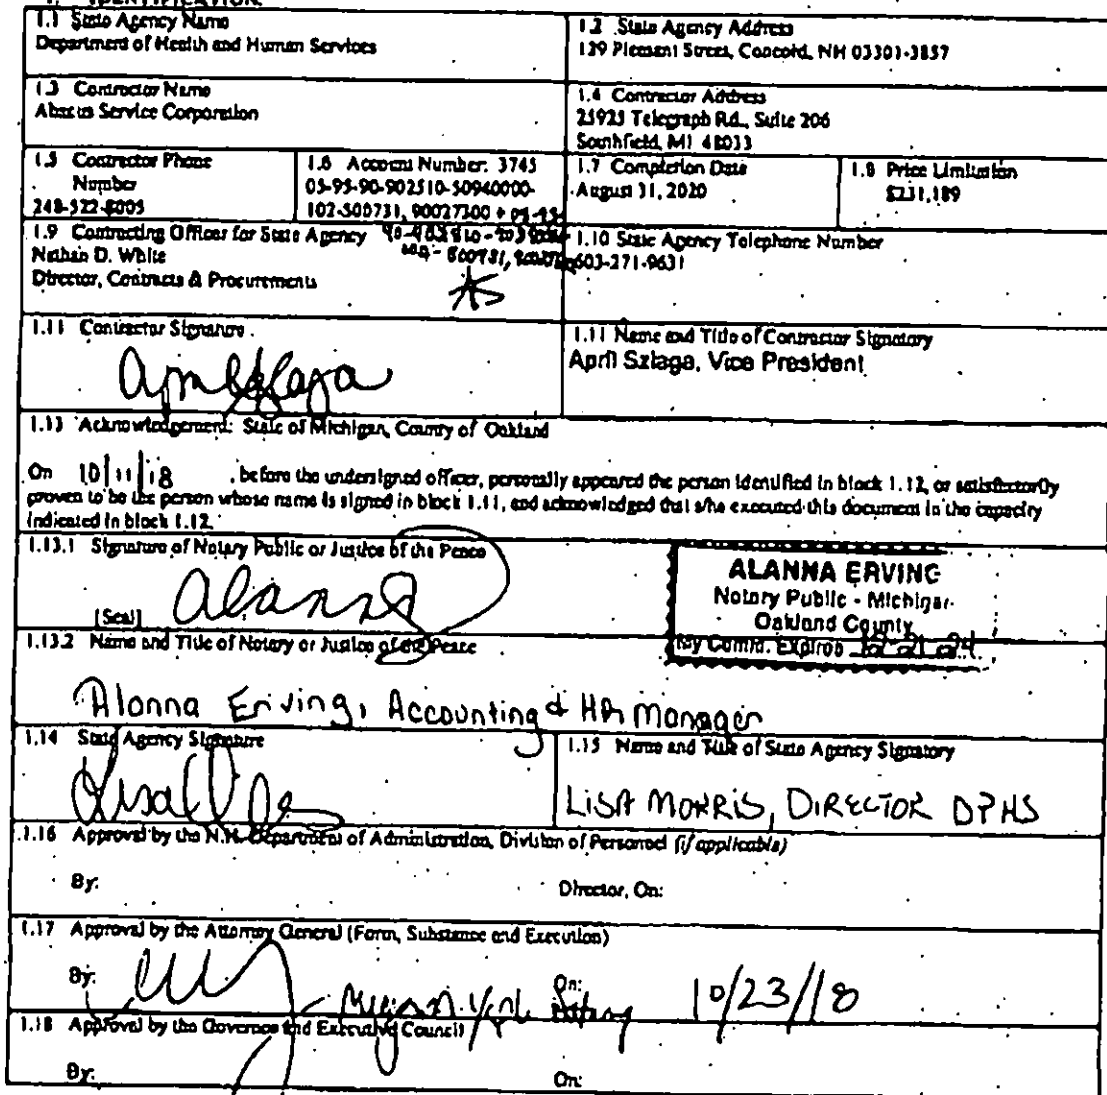 1. IDENTIFICATION.
1.1 State Agency Name
Department of Health and Human Services
1.2 State Agency Address
129 Pleasant Street, Concord, NH 03301-3857
1.3 Contractor Name
Abacus Service Corporation
1.4 Contractor Address
25925 Telegraph Rd., Suite 206
Southfield, MI 48033
1.5 Contractor Phone
Number
248-522-8005
1.6 Account Number: 3745
05-95-90-902510-50940000-
102-500731, 90027300 + 05-95-
1.7 Completion Date
August 31, 2020
1.8 Price Limitation
$231,189
1.9 Contracting Officer for State Agency
Nathan D. White
Director, Contracts & Procurements
1.10 State Agency Telephone Number
603-271-9631
1.11 Contractor Signature
1.11 Name and Title of Contractor Signatory
April Szlaga, Vice President
1.13 Acknowledgement: State of Michigan, County of Oakland
On 10/11/18, before the undersigned officer, personally appeared the person identified in block 1.12, or satisfactorily
proven to be the person whose name is signed in block 1.11, and acknowledged that s/he executed this document in the capacity
indicated in block 1.12.
1.13.1 Signature of Notary Public or Justice of the Peace
Alanna
[Seal]
ALANNA ERVING
Notary Public - Michigan
Oakland County
My Comm. Expires
1.13.2 Name and Title of Notary or Justice of the Peace
Alanna Erving, Accounting & HR Manager
1.14 State Agency Signature
1.15 Name and Title of State Agency Signatory
LISA MORRIS, DIRECTOR DPHS
1.16 Approval by the N.H. Department of Administration, Division of Personnel (if applicable)
By: Director, On:
1.17 Approval by the Attorney General (Form, Substance and Execution)
By: On: 10/23/18
1.18 Approval by the Governor and Executive Council
By: On: